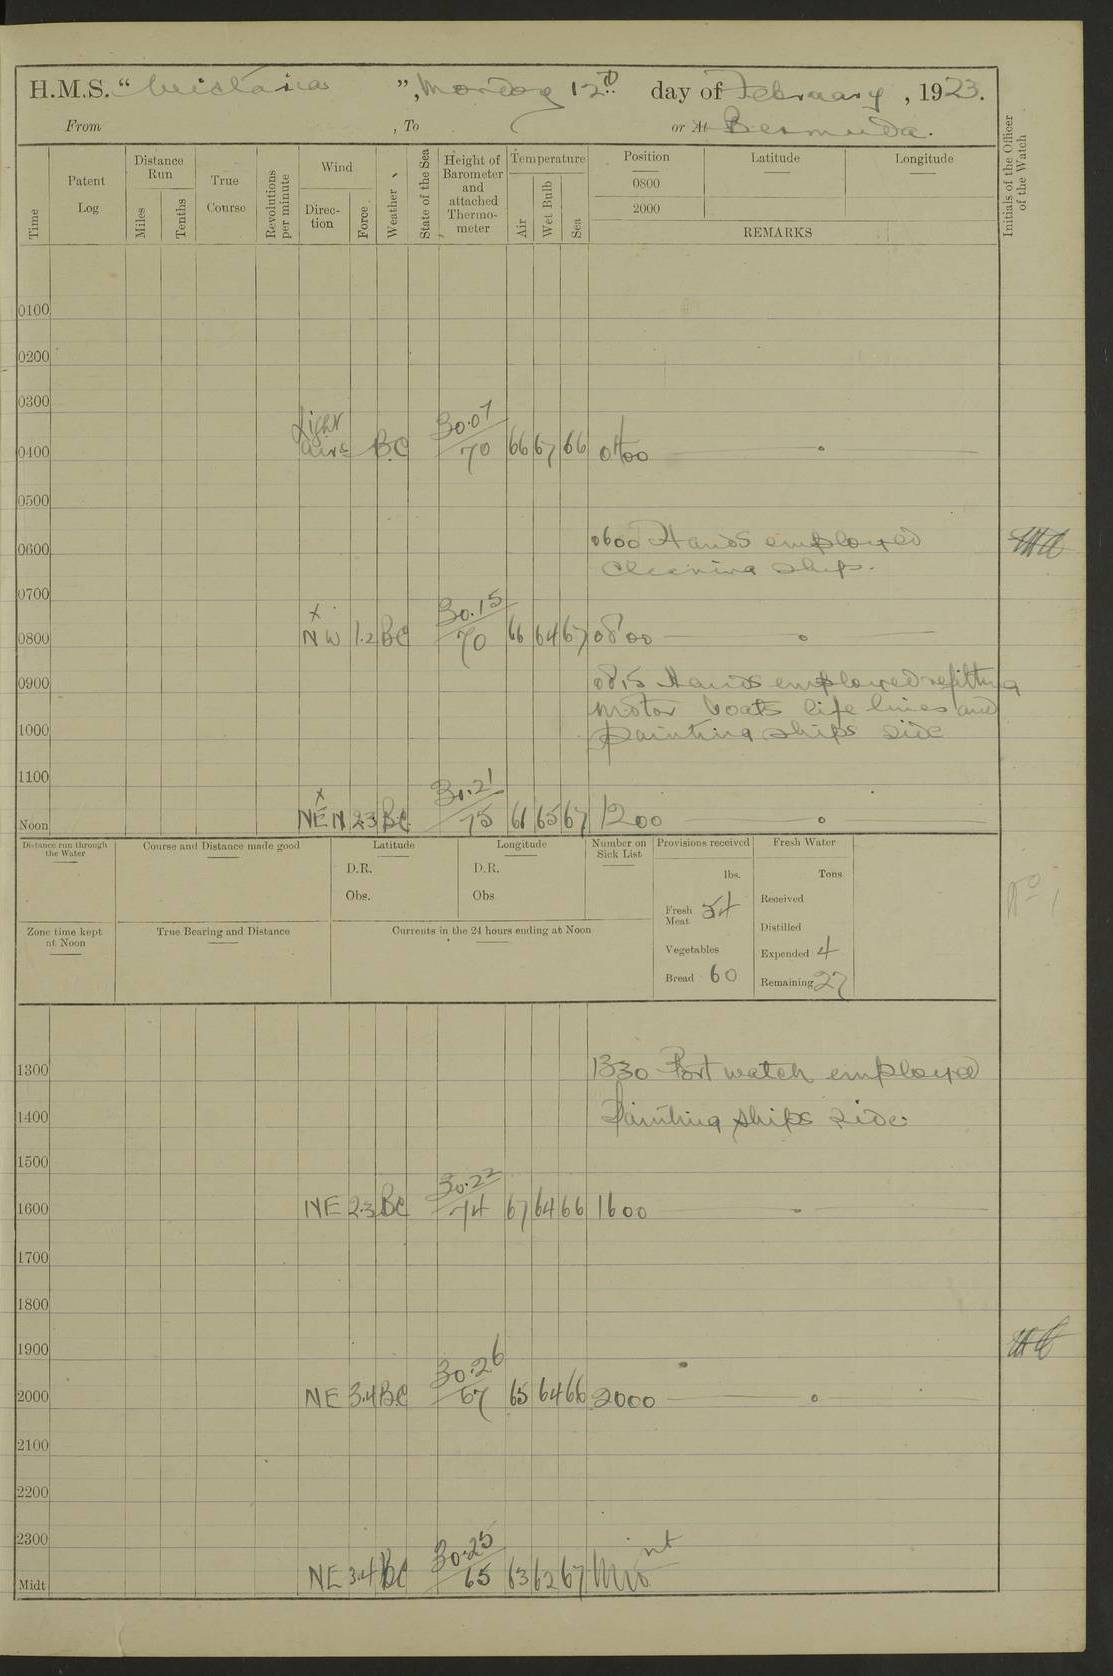 H.M.S. "Wistaria", Monday 12th day of February, 1923.
From , To or At Bermuda.
Time
Patent Log
Distance Run
Miles
Tenths
True Course
Revolutions per minute
Wind
Direc-tion
Force
Weather
State of the Sea
Height of Barometer and attached Thermo-meter
Temperature
Air
Wet Bulb
Sea
Position
0800
2000
Latitude
Longitude
REMARKS
Initials of the Officer of the Watch
0100
0200
0300
0400 Light airs BC 30.07/70 66 67 66 0400
0500
0600 0600 Hands employed
cleaning ship.
0700
0800 NW 1.2 BC 30.15/70 66 64 67 0800
0900 0815 Hands employed refitting
motor boats life lines and
1000 painting ships side
1100
Noon NEN 2.3 BC 30.21/75 66 65 67 1200
Distance run through the Water
Course and Distance made good
Latitude
D.R.
Obs.
Longitude
D.R.
Obs
Number on Sick List
Provisions received
lbs.
Fresh Meat 54
Vegetables
Bread 60
Fresh Water
Tons
Received
Distilled
Expended 4
Remaining 27
Zone time kept at Noon
True Bearing and Distance
Currents in the 24 hours ending at Noon
1300 1330 Port watch employed
1400 Painting ships side
1500
1600 NE 2.3 BC 30.22/74 67 64 66 1600
1700
1800
1900
2000 NE 3.4 BC 30.26/67 65 64 66 2000
2100
2200
2300
Midt NE 3.4 BC 30.25/65 63 62 67 Midnt